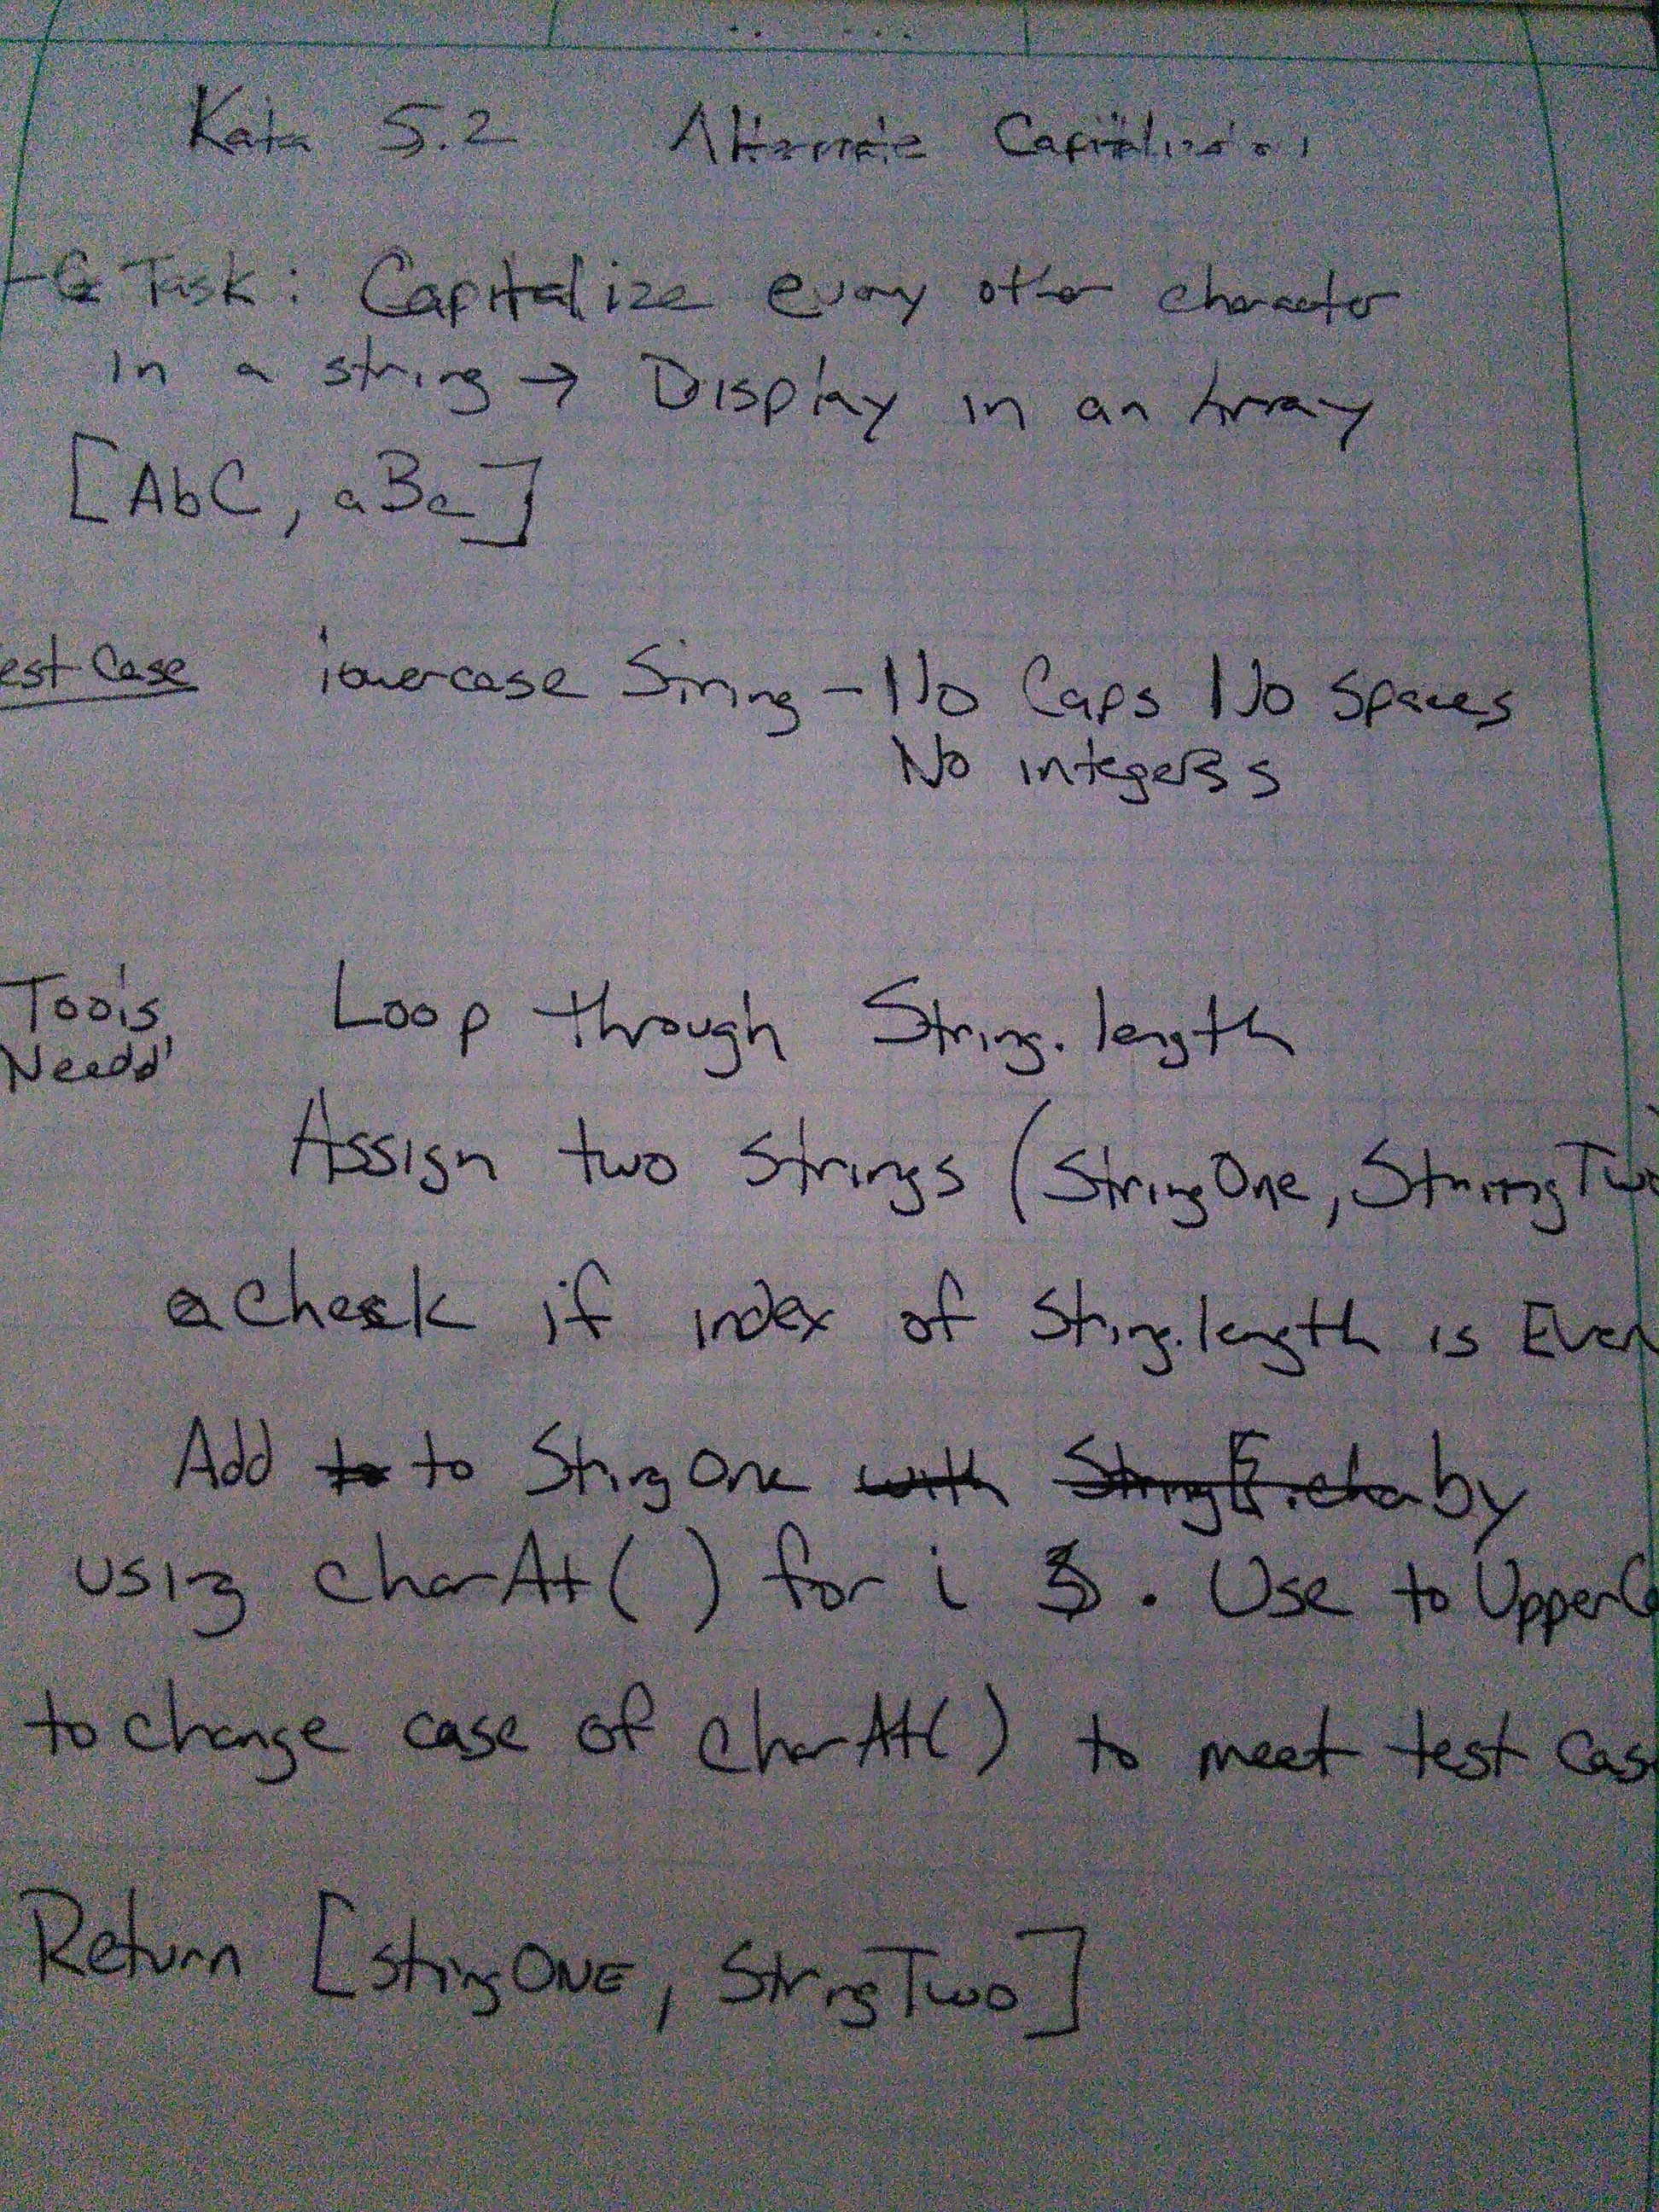 Kata 5.2 Alternate Capitalization
Task: Capitalize every other character
in a string → Display in an Array
[AbC, aBc]
est Case lowercase String - No Caps No Spaces
No integers
Tools Loop through String.length
Needd
Assign two strings (StringOne, StringTwo
check if index of String.length is Even
Add to to StringOne with by
using charAt( ) for i . Use toUpperCa
to change case of charAt( ) to meet test cas
Return [stringONE, StringTwo]